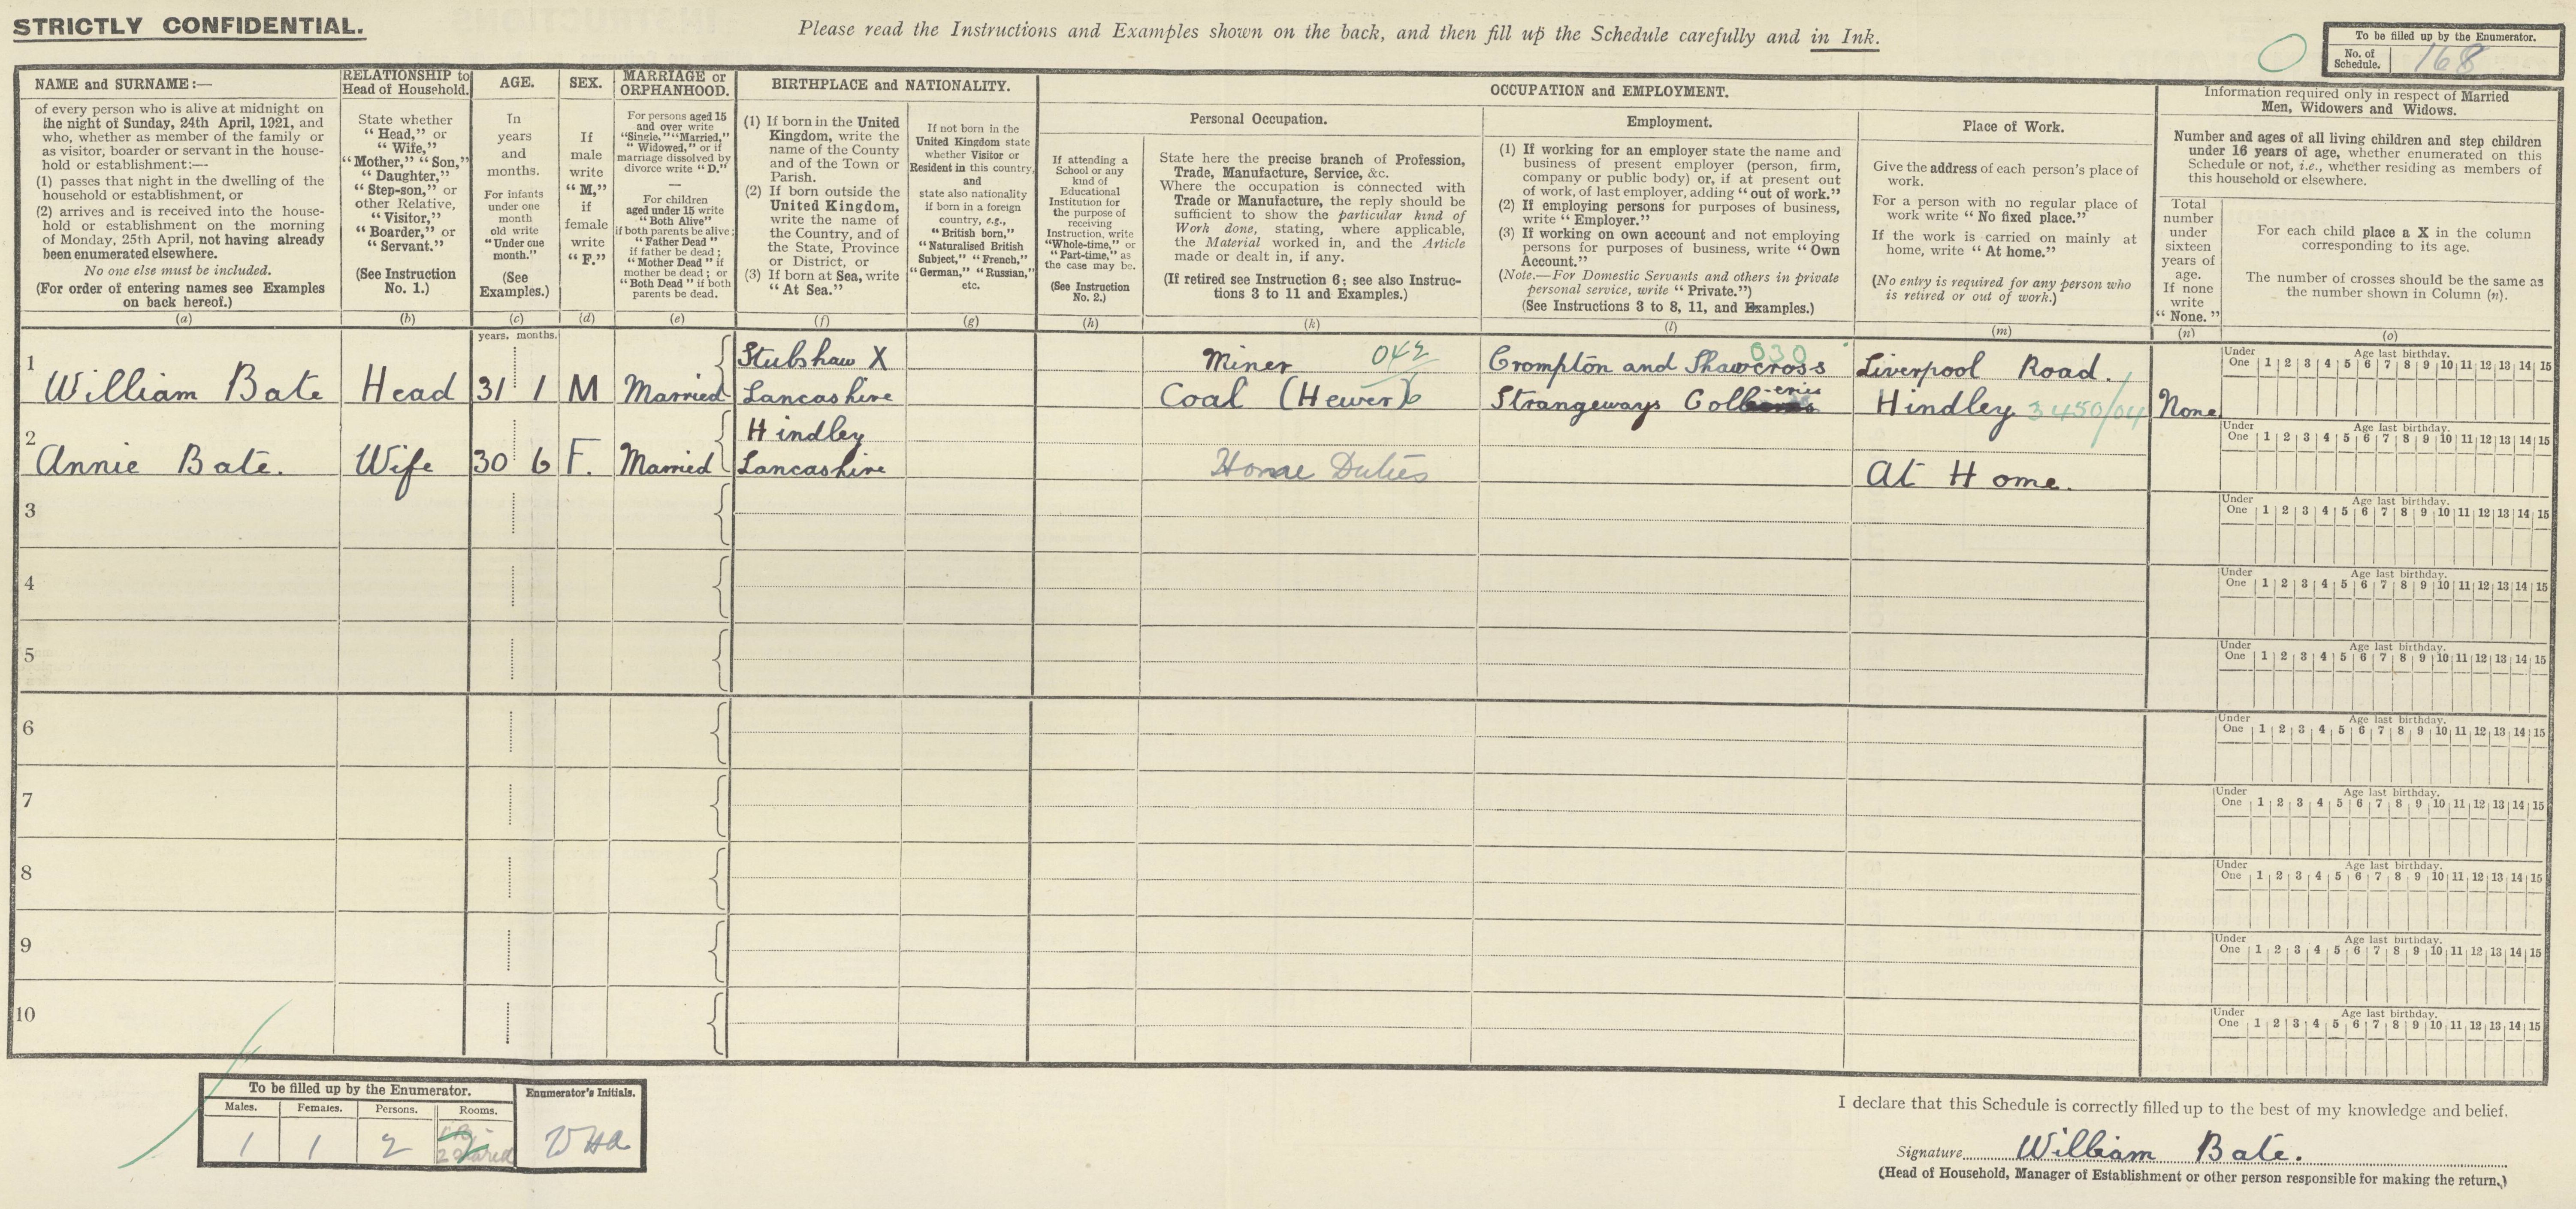 STRICTLY CONFIDENTIAL.
Please read the Instructions and Examples shown on the back, and then fill up the Schedule carefully and in Ink.
To be filled up by the Enumerator.
No. of
Schedule.
168
NAME and SURNAME :—
of every person who is alive at midnight on
the night of Sunday, 24th April, 1921, and
who, whether as member of the family or
as visitor, boarder or servant in the house-
hold or establishment:—
(1) passes that night in the dwelling of the
household or establishment, or
(2) arrives and is received into the house-
hold or establishment on the morning
of Monday, 25th April, not having already
been enumerated elsewhere.
No one else must be included.
(For order of entering names see Examples
on back hereof.)
(a)
RELATIONSHIP to
Head of Household.
State whether
"Head," or
"Wife,"
"Mother," "Son,"
"Daughter,"
"Step-son," or
other Relative,
"Visitor,"
"Boarder," or
"Servant."
(See Instruction
No. 1.)
(b)
AGE.
In
years
and
months.
For infants
under one
month
old write
"Under one
month."
(See
Examples.)
(c)
SEX.
If
male
write
"M,"
if
female
write
"F."
(d)
MARRIAGE or
ORPHANHOOD.
For persons aged 15
and over write
"Single," "Married,"
"Widowed," or if
marriage dissolved by
divorce write "D."
For children
aged under 15 write
"Both Alive"
if both parents be alive;
"Father Dead"
if father be dead;
"Mother Dead" if
mother be dead; or
"Both Dead" if both
parents be dead.
(e)
BIRTHPLACE and NATIONALITY.
(1) If born in the United
Kingdom, write the
name of the County
and of the Town or
Parish.
(2) If born outside the
United Kingdom,
write the name of
the Country, and of
the State, Province
or District, or
(3) If born at Sea, write
"At Sea."
(f)
If not born in the
United Kingdom state
whether Visitor or
Resident in this country,
and
state also nationality
if born in a foreign
country, e.g.,
"British born,"
"Naturalised British
Subject," "French,"
"German," "Russian,"
etc.
(g)
OCCUPATION and EMPLOYMENT.
If attending a
School or any
kind of
Educational
Institution for
the purpose of
receiving
Instruction, write
"Whole-time," or
"Part-time," as
the case may be.
(See Instruction
No. 2.)
(h)
Personal Occupation.
State here the precise branch of Profession,
Trade, Manufacture, Service, &c.
Where the occupation is connected with
Trade or Manufacture, the reply should be
sufficient to show the particular kind of
Work done, stating, where applicable,
the Material worked in, and the Article
made or dealt in, if any.
(If retired see Instruction 6; see also Instruc-
tions 3 to 11 and Examples.)
(k)
Employment.
(1) If working for an employer state the name and
business of present employer (person, firm,
company or public body) or, if at present out
of work, of last employer, adding "out of work."
(2) If employing persons for purposes of business,
write "Employer."
(3) If working on own account and not employing
persons for purposes of business, write "Own
Account."
(Note.—For Domestic Servants and others in private
personal service, write "Private.")
(See Instructions 3 to 8, 11, and Examples.)
(l)
Place of Work.
Give the address of each person's place of
work.
For a person with no regular place of
work write "No fixed place."
If the work is carried on mainly at
home, write "At home."
(No entry is required for any person who
is retired or out of work.)
(m)
Information required only in respect of Married
Men, Widowers and Widows.
Number and ages of all living children and step children
under 16 years of age, whether enumerated on this
Schedule or not, i.e., whether residing as members of
this household or elsewhere.
Total
number
under
sixteen
years of
age.
If none
write
"None."
(n)
For each child place a X in the column
corresponding to its age.
The number of crosses should be the same as
the number shown in Column (n).
(o)
years. months.
1
William Bate
Head
31 1
M
Married
Stubshaw X
Lancashire
Miner 042
Coal (Hewer) 6
030
Crompton and Shawcross
Strangeways Coll-eries
Liverpool Road.
Hindley 3450/04
None
Under One Age last birthday.
1 2 3 4 5 6 7 8 9 10 11 12 13 14 15
2
Annie Bate.
Wife
30 6
F.
Married
Hindley
Lancashire
Home Duties
At Home.
Under One Age last birthday.
1 2 3 4 5 6 7 8 9 10 11 12 13 14 15
3
Under One Age last birthday.
1 2 3 4 5 6 7 8 9 10 11 12 13 14 15
4
Under One Age last birthday.
1 2 3 4 5 6 7 8 9 10 11 12 13 14 15
5
Under One Age last birthday.
1 2 3 4 5 6 7 8 9 10 11 12 13 14 15
6
Under One Age last birthday.
1 2 3 4 5 6 7 8 9 10 11 12 13 14 15
7
Under One Age last birthday.
1 2 3 4 5 6 7 8 9 10 11 12 13 14 15
8
Under One Age last birthday.
1 2 3 4 5 6 7 8 9 10 11 12 13 14 15
9
Under One Age last birthday.
1 2 3 4 5 6 7 8 9 10 11 12 13 14 15
10
Under One Age last birthday.
1 2 3 4 5 6 7 8 9 10 11 12 13 14 15
To be filled up by the Enumerator.
Enumerator's Initials.
Males. Females. Persons. Rooms.
1 1 2
WHA
I declare that this Schedule is correctly filled up to the best of my knowledge and belief.
Signature William Bate.
(Head of Household, Manager of Establishment or other person responsible for making the return.)